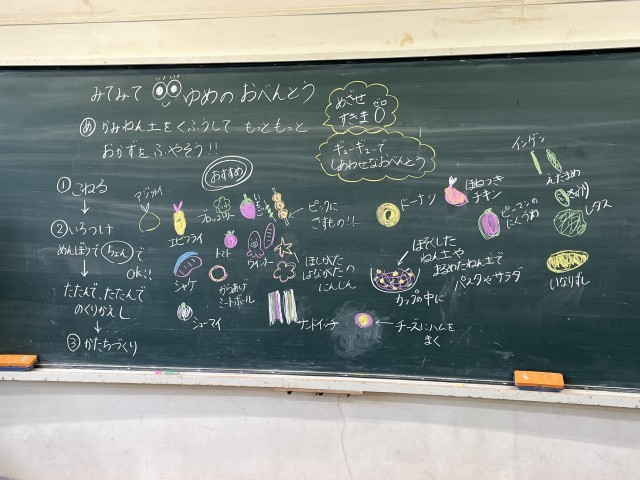 みてみて ゆめの おべんとう
め かみねん土をくふうして もっともっと
おかずをふやそう!!
めざせ
すきま0
ギューギューで
しあわせなおべんとう
おすすめ
① こねる
↓
② いろつけ
めんぼうで ちょん で
ok!!
↓
たたんで、たたんで
のくりかえし
↓
③ かたちづくり
アジフライ
エビフライ
ブロッコリー
いちご
トマト
ウインナー
シャケ
からあげ
ミートボール
シューマイ
サンドイッチ
ピックに
さすもの!!
ほしがた
はながたの
にんじん
ドーナツ
ほねつき
チキン
ピーマンの
にくづめ
インゲン
えだまめ
きゅうり
レタス
いなりずし
ほそくした
ねん土や
まるめたねん土で
パスタやサラダ
カップの中に
チーズにハムを
まく